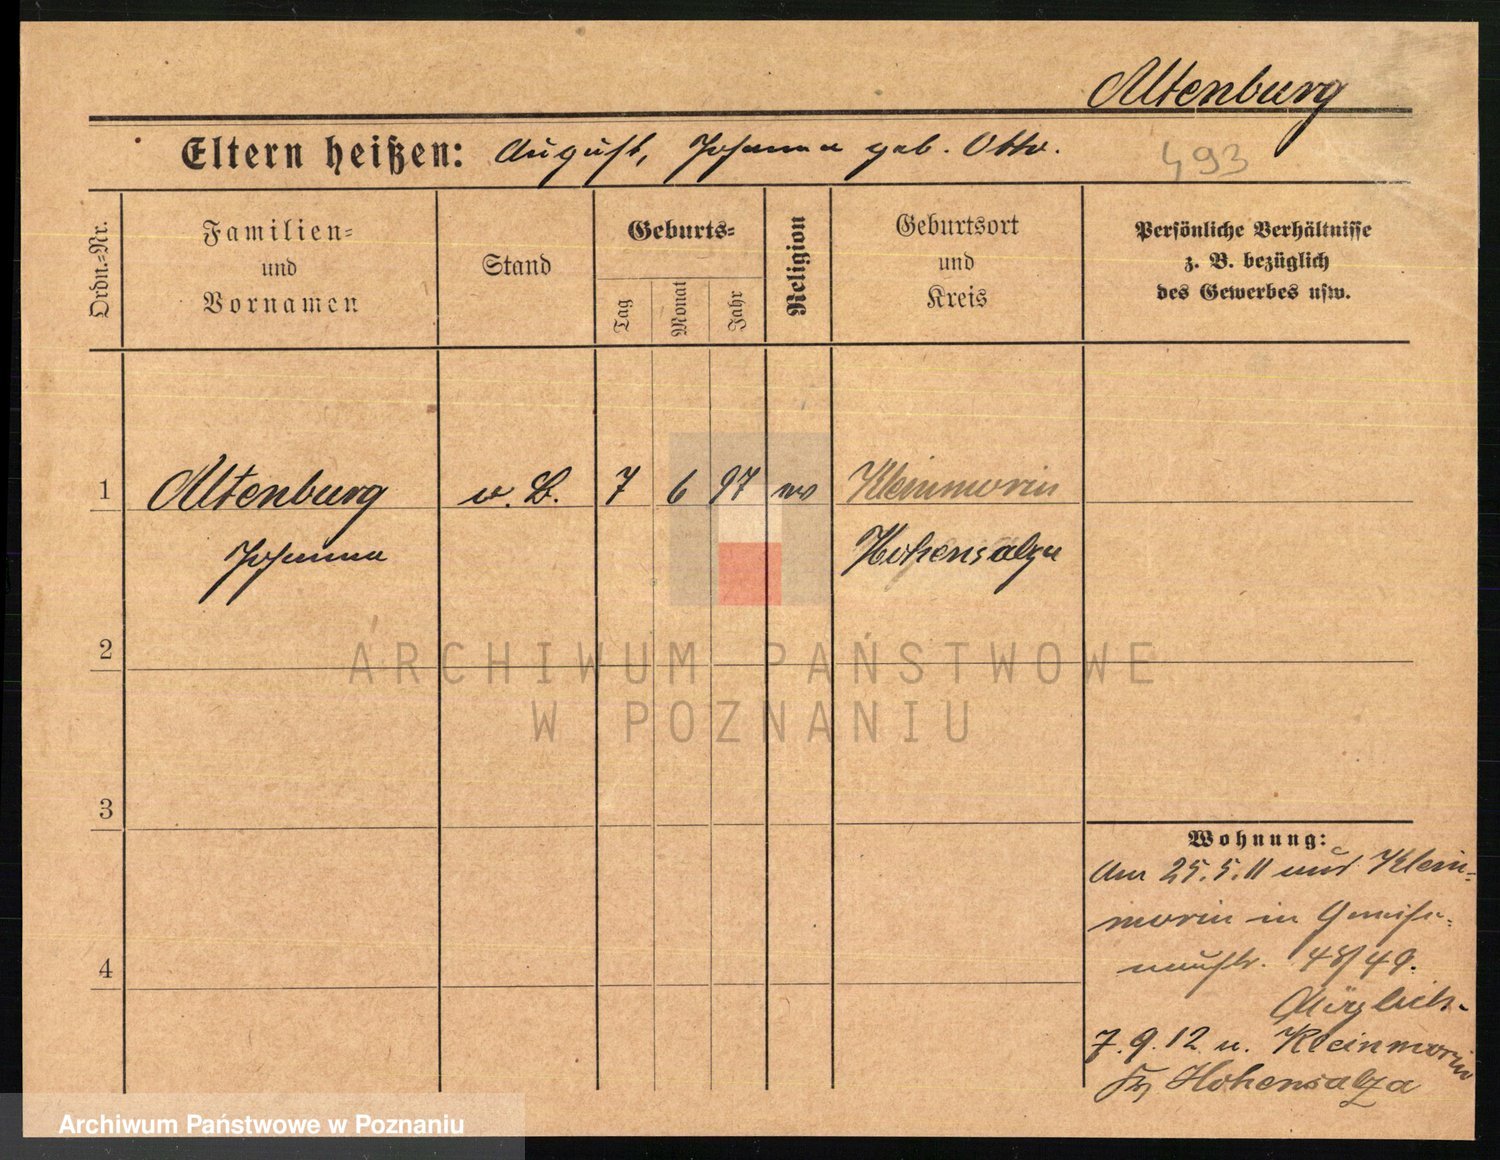 Altenburg
Eltern heißen: August, Johanna geb. Otto.
493
Ordn.=Nr.
Familien=
und
Vornamen
Stand
Geburts=
Tag
Monat
Jahr
Religion
Geburtsort
und
Kreis
Persönliche Verhältnisse
z. B. bezüglich
des Gewerbes usw.
1 Altenburg o. B. 7 6 97 ev Kleinmorin
Johanna Hohensalza
2
3
4
ARCHIWUM PAŃSTWOWE
W POZNANIU
Wohnung:
Am 25.5.11 aus Klein=
morin in Gneise=
naustr. 48/49.
7.9.12 n. Kleinmorin
Hohensalza
Archiwum Państwowe w Poznaniu